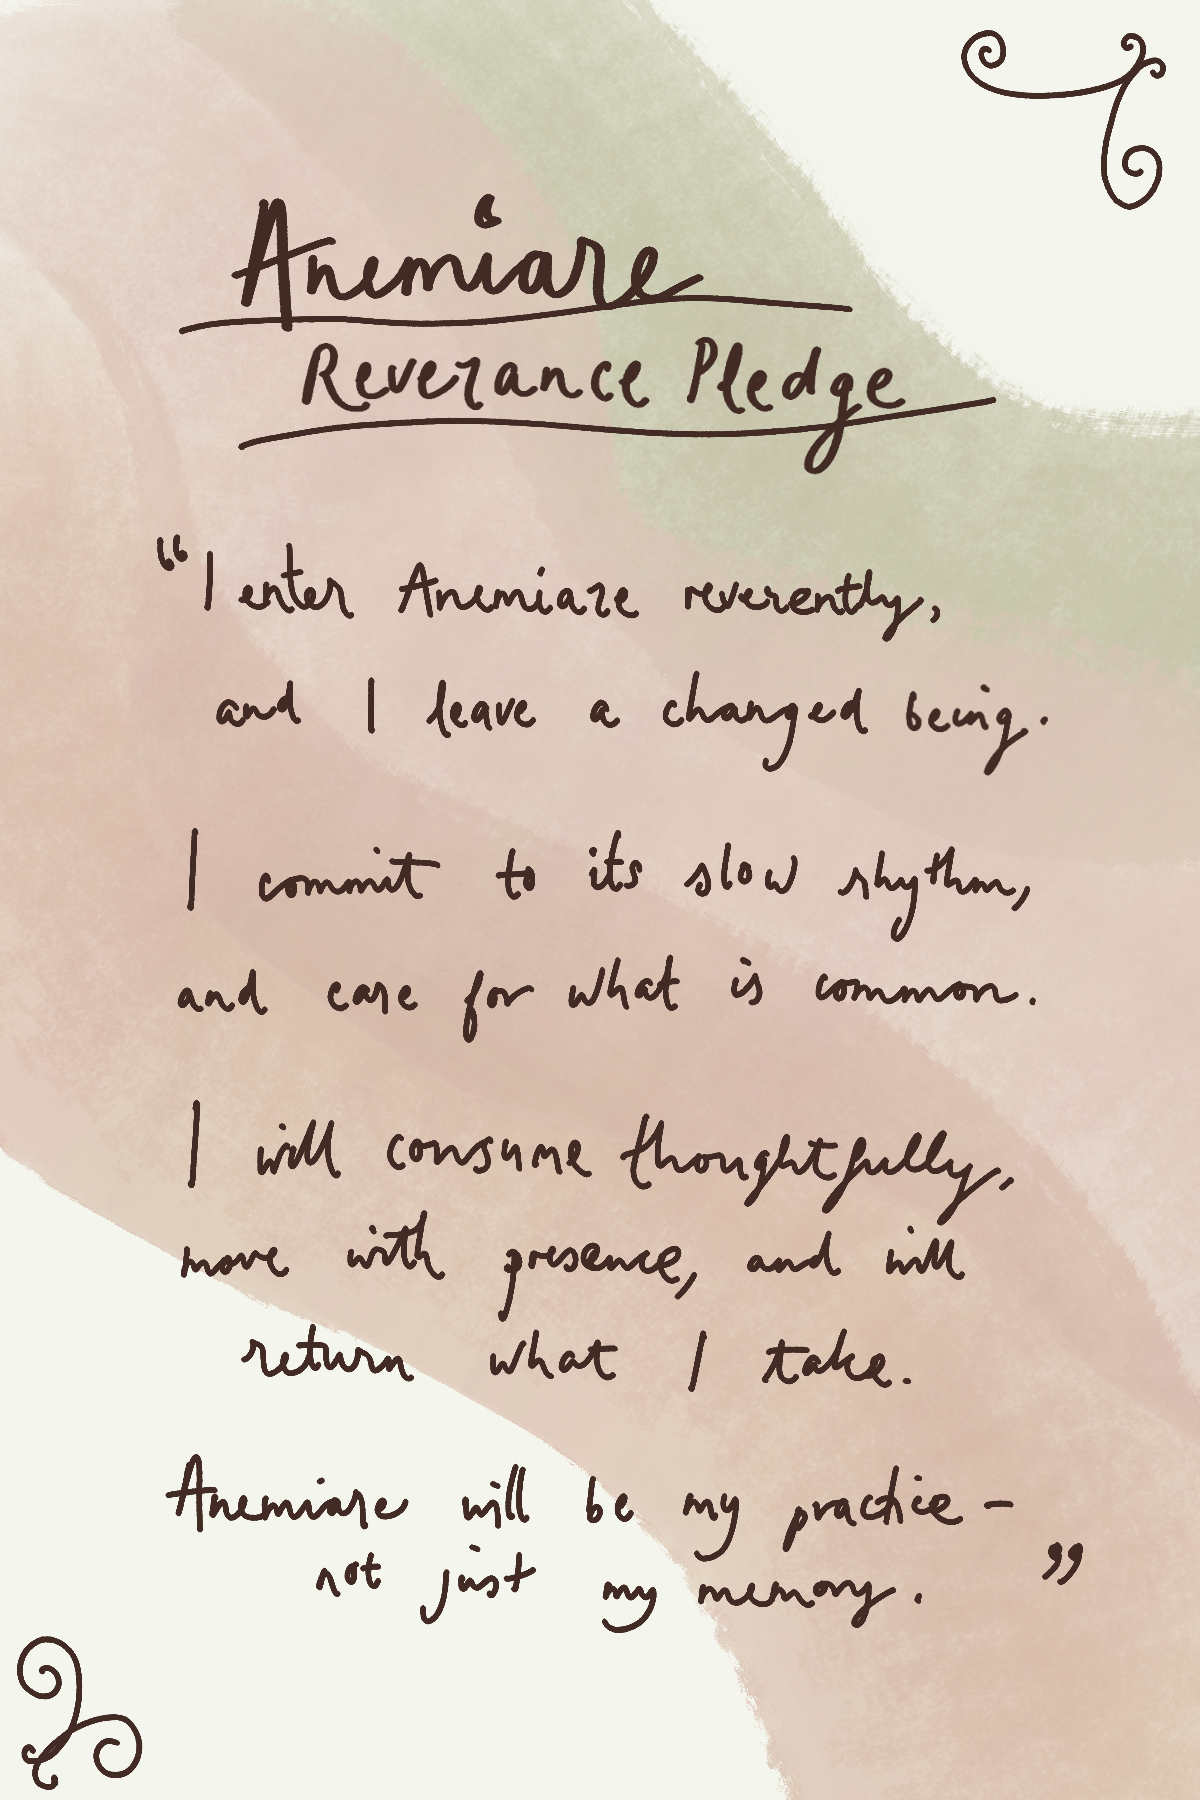 Anemiare
Reverance Pledge
“I enter Anemiare reverently,
and I leave a changed being.
I commit to its slow rhythm,
and care for what is common.
I will consume thoughtfully,
move with presence, and will
return what I take.
Anemiare will be my practice –
not just my memory. ”